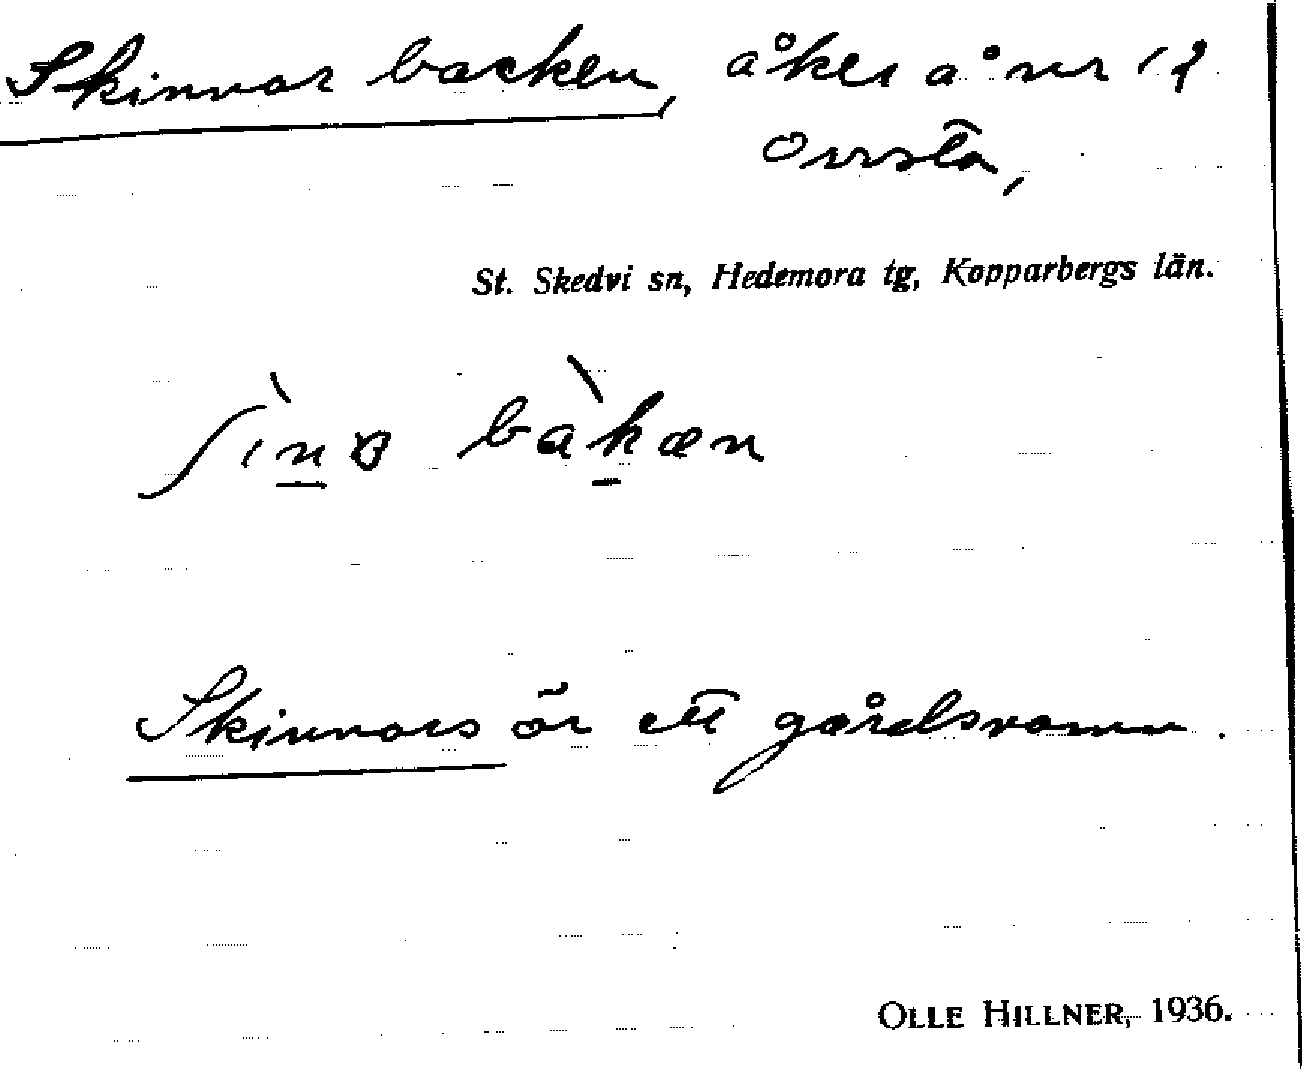 Skinnar backen, åker å nr 12
Ovvsta,
St. Skedvi sn, Hedemora tg, Kopparbergs län.
Skinnars är ett gårdsnamn.
OLLE HILLNER, 1936.